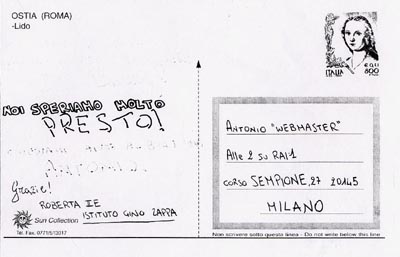 OSTIA (ROMA)
-Lido
NOI SPERIAMO MOLTO
PRESTO!
Grazie!
ROBERTA IE
ISTITUTO GINO ZAPPA
Sun Collection
Tel. Fax. 0771/513017
ITALIA 800
ANTONIO "WEBMASTER"
Alle 2 su RAI 1
CORSO SEMPIONE, 27 20145
MILANO
Non scrivere sotto questa linea - Do not write below this line